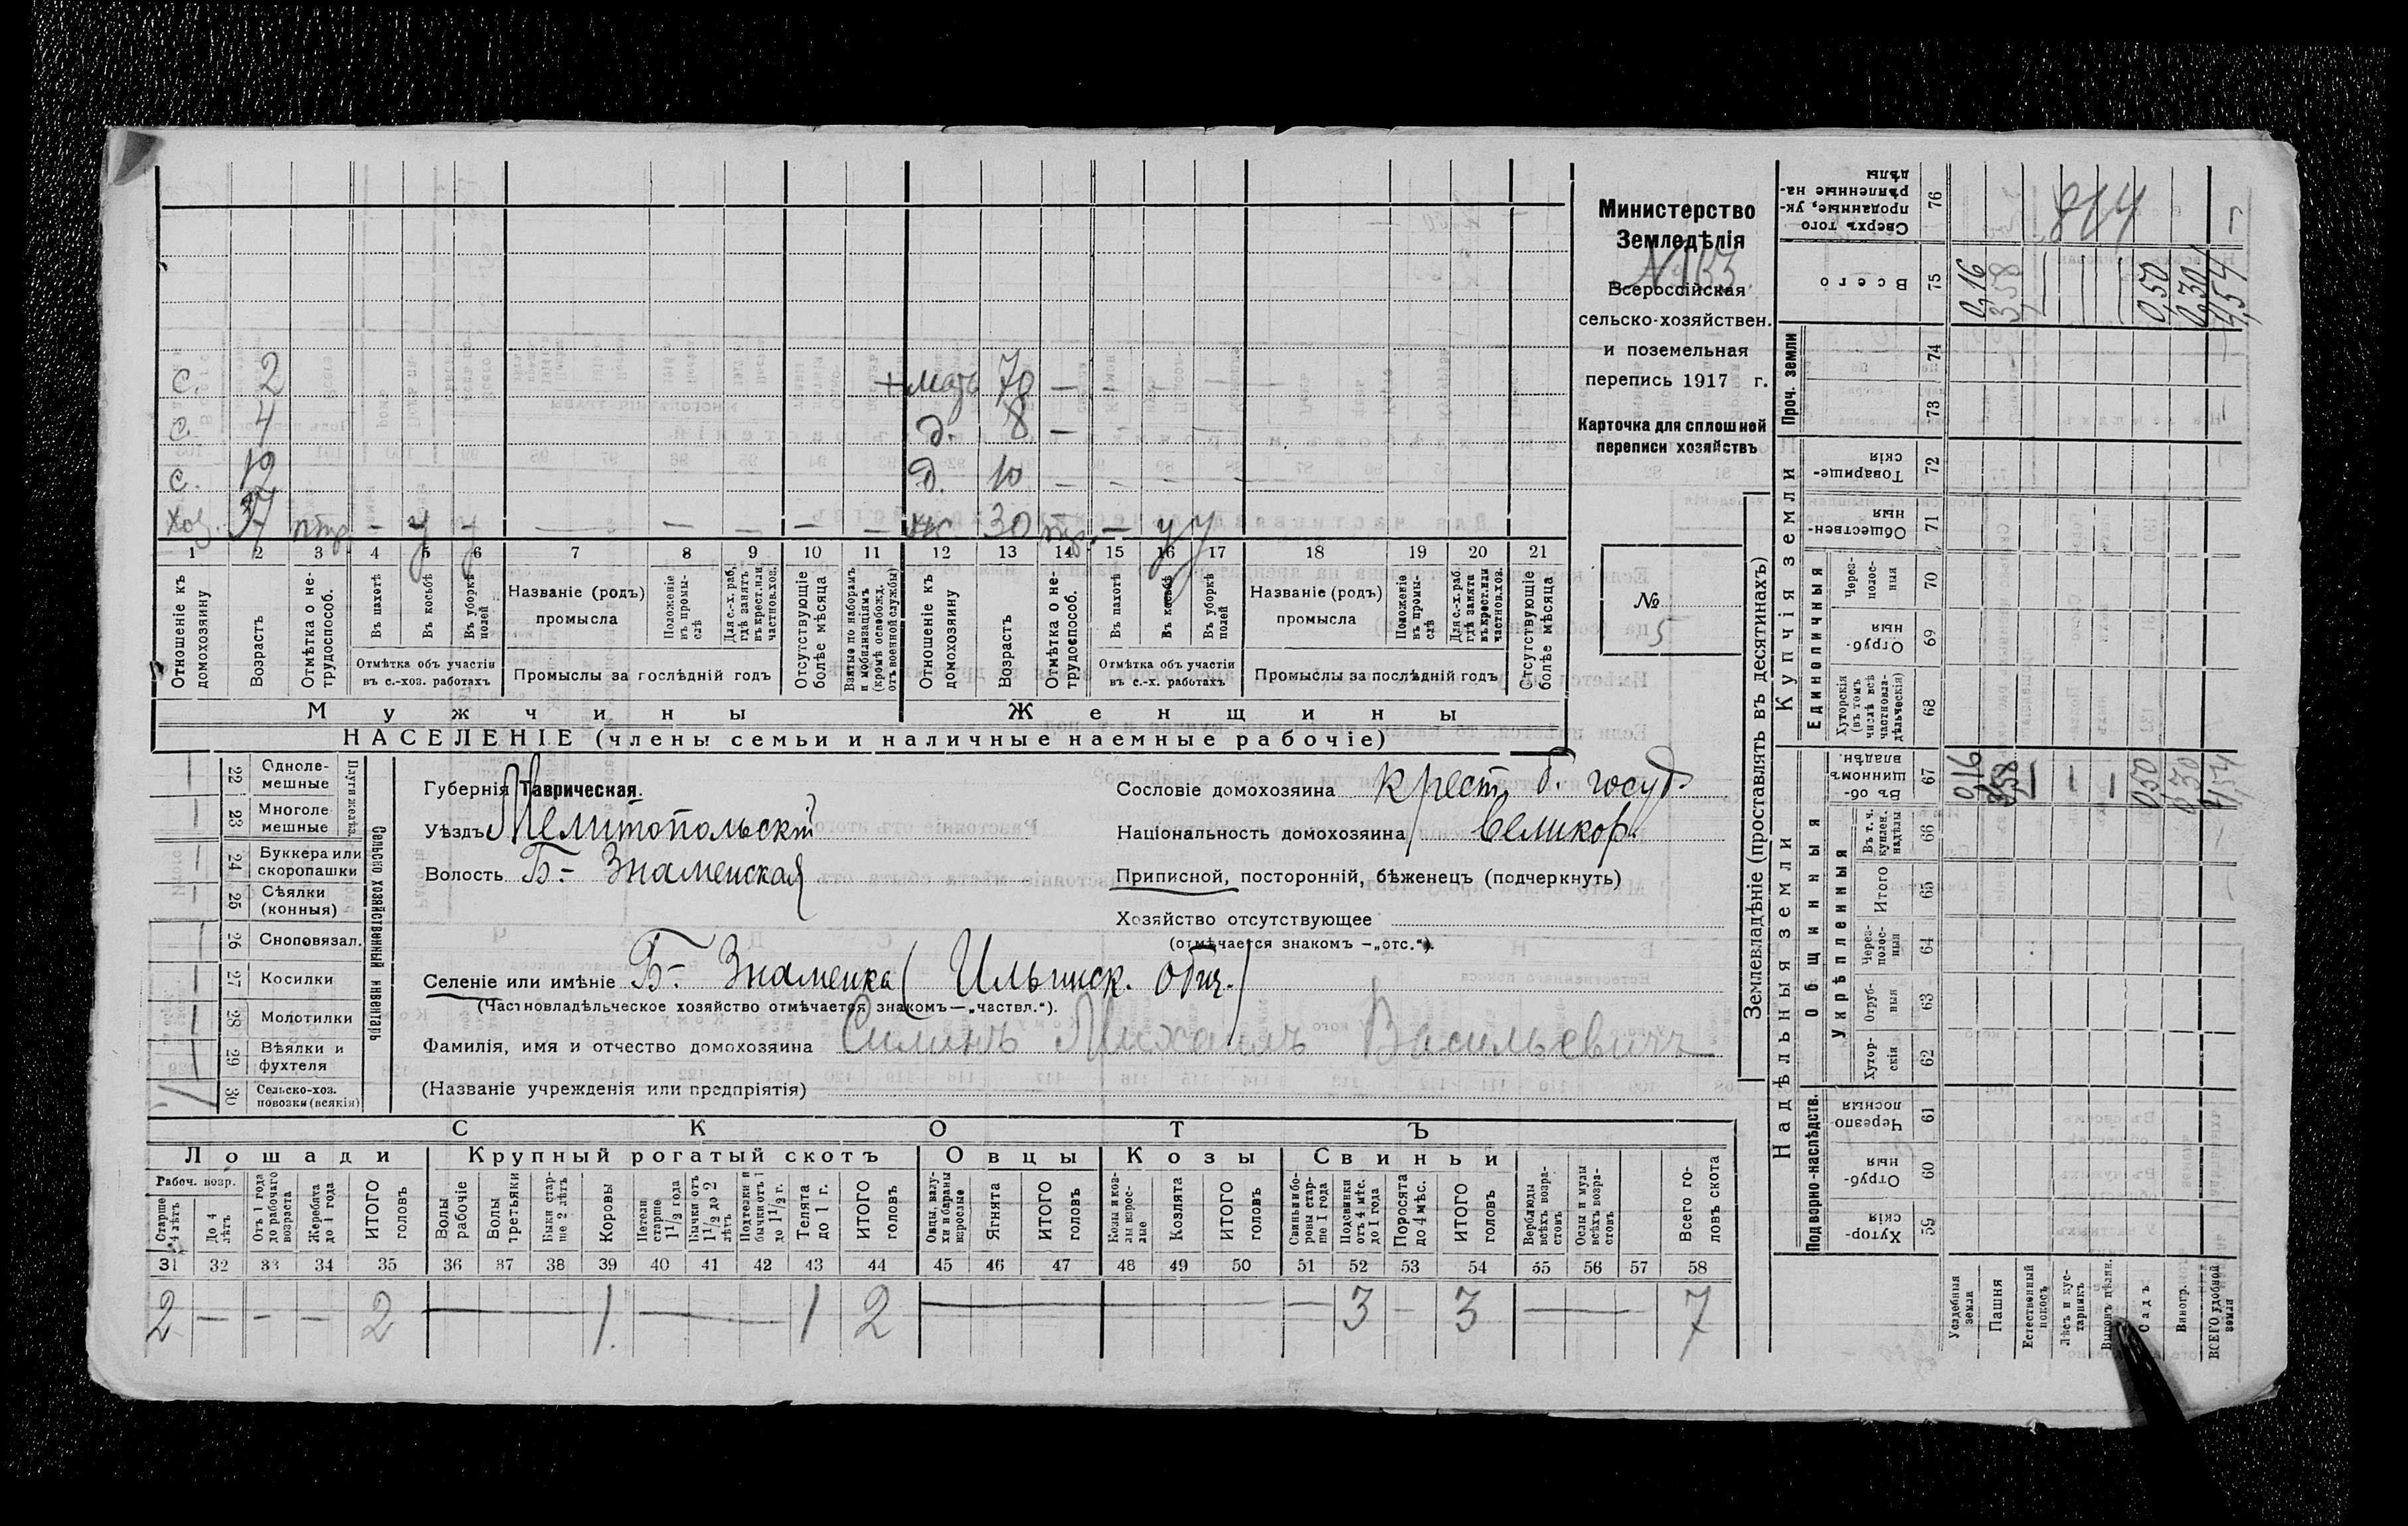 Министерство
Земледѣлія
Всероссійская
сельско-хозяйствен.
и поземельная
перепись 1917 г.
Карточка для сплошной
переписи хозяйствъ
№
5
с. 2 мать 70 —
с. 4 д. 8 —
с. 12 д. 10 — — — —
Хоз. 37 — у — — — — — — ж 30 — у у
1 2 3 4 5 6 7 8 9 10 11 12 13 14 15 16 17 18 19 20 21
Отношеніе къ домохозяину
Возрастъ
Отмѣтка о не-трудоспособ.
Въ пахотѣ
Въ косьбѣ
Въ уборкѣ полей
Отмѣтка объ участіи въ с.-хоз. работахъ
Названіе (родъ) промысла
Положеніе въ промы-слѣ
Для с.-х. раб. гдѣ занятъ въ крест. или частнов. хоз.
Промыслы за послѣдній годъ
Отсутствующіе болѣе мѣсяца
Взятые по наборамъ и мобилизаціямъ (кромѣ освобожд. отъ военной службы)
Отношеніе къ домохозяину
Возрастъ
Отмѣтка о не-трудоспособ.
Въ пахотѣ
Въ косьбѣ
Въ уборкѣ полей
Отмѣтка объ участіи въ с.-х. работахъ
Названіе (родъ) промысла
Положеніе въ промы-слѣ
Для с.-х. раб. гдѣ занята въ крест. или частнов. хоз.
Промыслы за послѣдній годъ
Отсутствующіе болѣе мѣсяца
Мужчины Женщины
НАСЕЛЕНІЕ (члены семьи и наличные наемные рабочіе)
Сельско хозяйственный инвентарь
Плуги желѣз.
22 Однолемешные —
23 Многолемешные —
24 Буккера или скоропашки —
25 Сѣялки (конныя) —
26 Сноповязал. —
27 Косилки —
28 Молотилки —
29 Вѣялки и фухтеля —
30 Сельско-хоз. повозки (всякія) 1
Губернія Таврическая.
Уѣздъ Мелитопольскій
Волость Б.- Знаменская
Сословіе домохозяина крест. б. госуд.
Національность домохозяина великор.
Приписной, посторонній, бѣженецъ (подчеркнуть)
Хозяйство отсутствующее
(отмѣчается знакомъ — „отс.“).
Селеніе или имѣніе Б.- Знаменка (Ильинск. общ.)
(Частновладѣльческое хозяйство отмѣчается знакомъ — „частвл.“).
Фамилія, имя и отчество домохозяина Силинъ Михаилъ Васильевичъ
(Названіе учрежденія или предпріятія)
СКОТЪ
Лошади Крупный рогатый скотъ Овцы Козы Свиньи
Рабоч. возр.
Старше 4 лѣтъ
До 4 лѣтъ
Отъ 1 года до рабочаго возраста
Жеребята до 1 года
ИТОГО головъ
Волы рабочіе
Волы третьяки
Быки старше 2 лѣтъ
Коровы
Нетели старше 1 1/2 года
Бычки отъ 1 1/2 до 2 лѣтъ
Подтелки и бычки отъ 1 до 1 1/2 г.
Телята до 1 г.
ИТОГО головъ
Овцы, валухи и бараны взрослые
Ягнята
ИТОГО головъ
Козы и козлы взрослые
Козлята
ИТОГО головъ
Свиньи и боровы старше 1 года
Подсвинки отъ 4 мѣс. до 1 года
Поросята до 4 мѣс.
ИТОГО головъ
Верблюды всѣхъ возрастовъ
Ослы и мулы всѣхъ возрастовъ
Всего головъ скота
31 32 33 34 35 36 37 38 39 40 41 42 43 44 45 46 47 48 49 50 51 52 53 54 55 56 57 58
2 — — — 2 — 1 — 1 2 — — — 3 — 3 — 7
Землевладѣніе (проставлять въ десятинахъ)
Надѣльныя земли Купчія земли Проч. земли
Подворно-наслѣдств.
Общинныя
Укрѣпленныя
Единоличныя
59 Хуторскія
60 Отрубныя
61 Черезполосныя
62 Хуторскія
63 Отрубныя
64 Черезполосныя
65 Итого
66 Въ т. ч. куплен. надѣлы
67 Въ общинномъ владѣн.
68 Хуторскія (въ томъ числѣ всѣ частновладѣльческія)
69 Отрубныя
70 Черезполосныя
71 Общественныя
72 Товарищескія
73
74
75 Всего
76 Сверхъ того проданные, укрѣпленные надѣлы
814
Усадебныя земли 0,16 0,16
Пашня 3,58 3,58
Естественный покосъ —
Лѣсъ и кустарникъ —
Выгонъ цѣлин. —
Садъ 0,50 0,50
Виногр. 0,30 0,30
ВСЕГО удобной земли 4,54 4,54